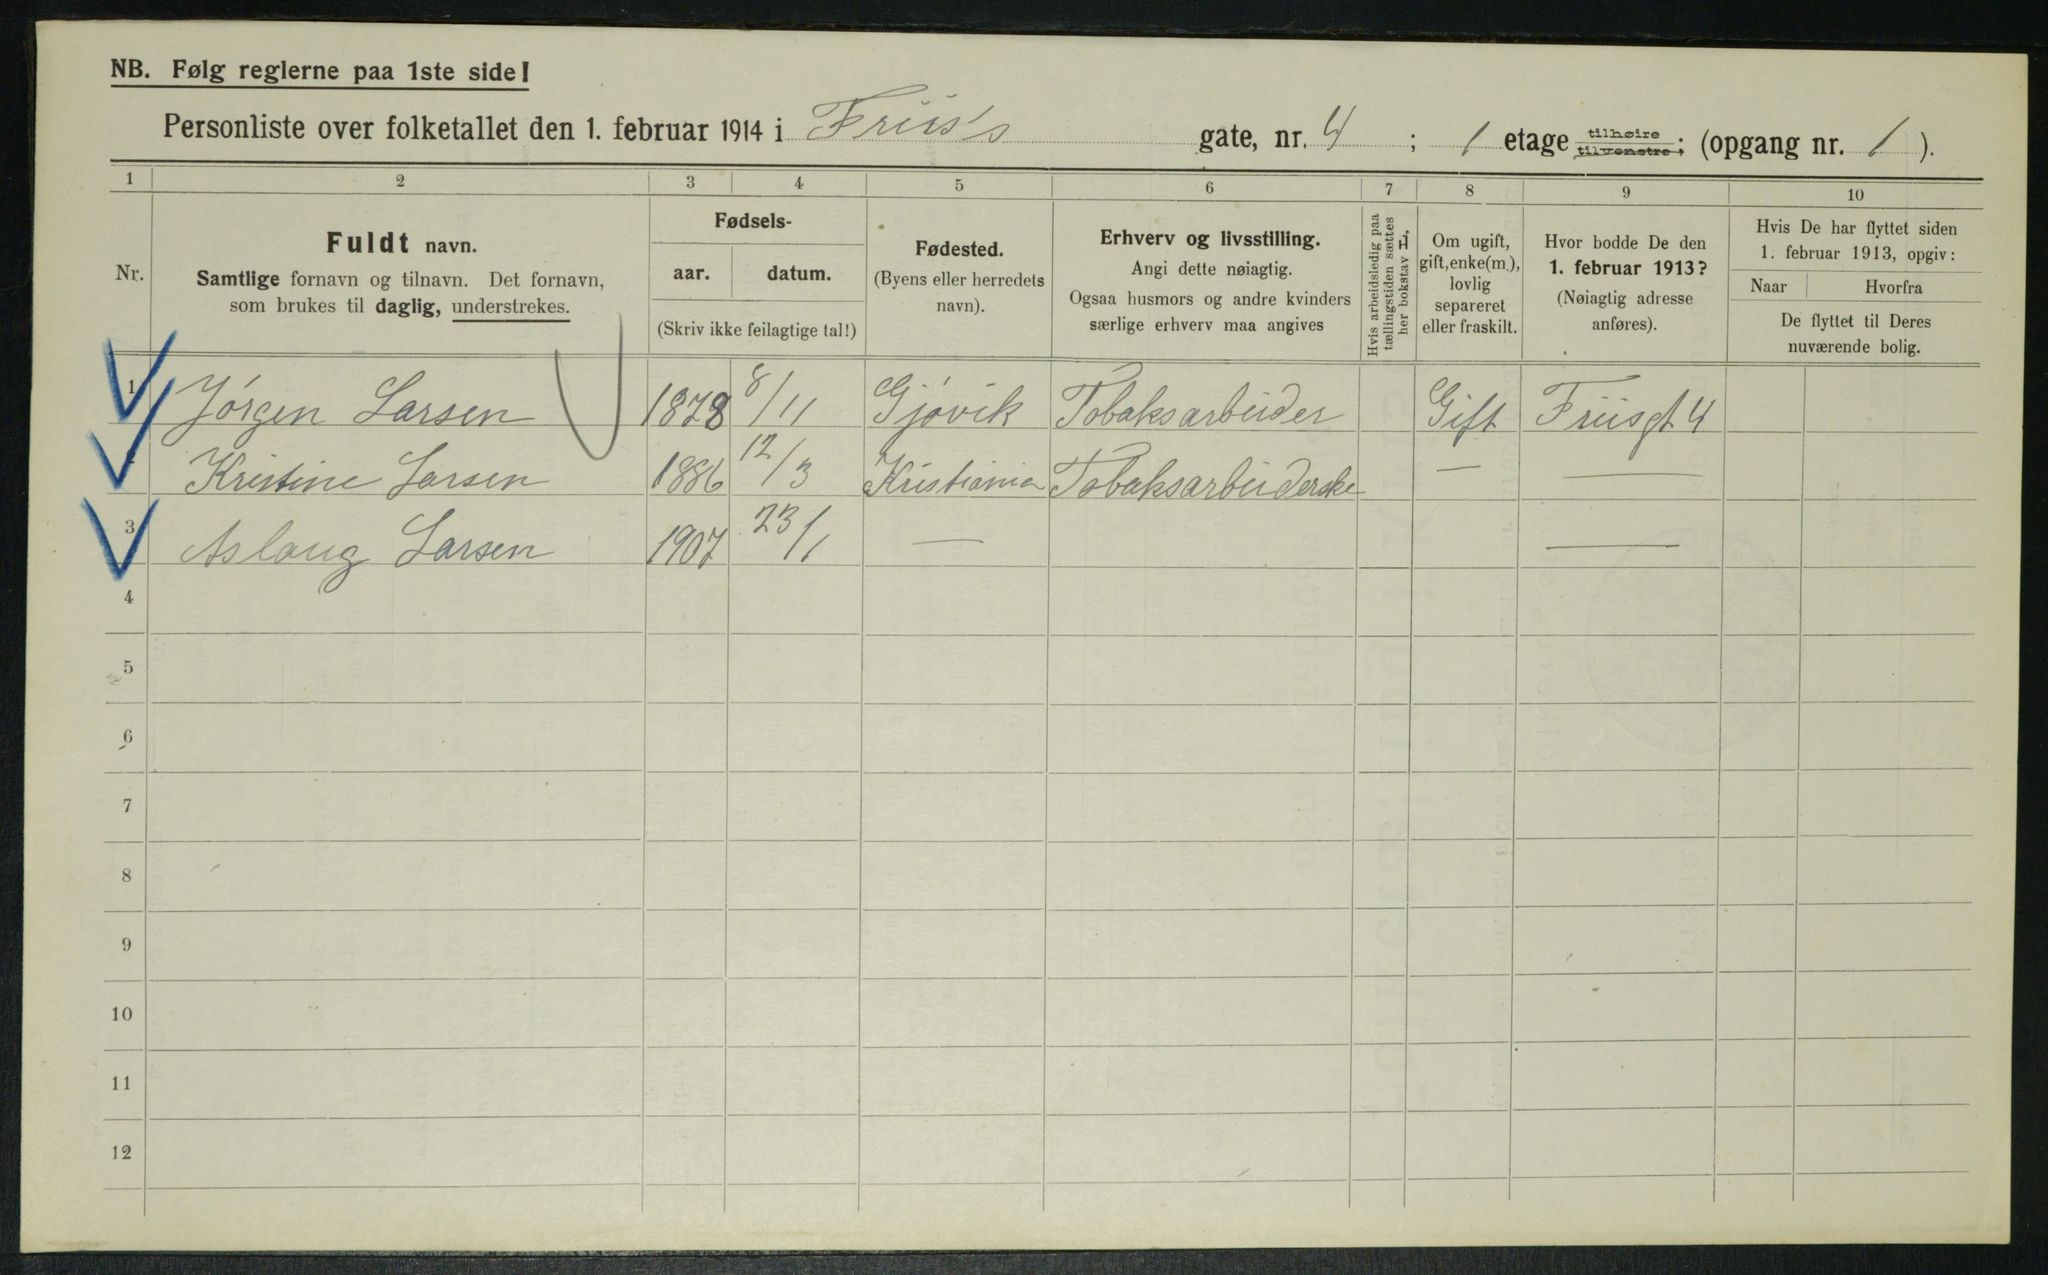 NB. Følg reglerne paa 1ste side!
Personliste over folketallet den 1. februar 1914 i Friis's gate, nr. 4 ; 1 etage tilhøire tilvenstre; (opgang nr. 1 ).
1 2 3 4 5 6 7 8 9 10
Nr.
Fuldt navn.
Samtlige fornavn og tilnavn. Det fornavn,
som brukes til daglig, understrekes.
Fødsels-
aar. datum.
(Skriv ikke feilagtige tal!)
Fødested.
(Byens eller herredets
navn).
Erhverv og livsstilling.
Angi dette nøiagtig.
Ogsaa husmors og andre kvinders
særlige erhverv maa angives
Hvis arbeidsledig paa
tællingstiden sættes
her bokstav L.
Om ugift,
gift, enke(m.),
lovlig
separeret
eller fraskilt.
Hvor bodde De den
1. februar 1913?
(Nøiagtig adresse
anføres).
Hvis De har flyttet siden
1. februar 1913, opgiv:
Naar Hvorfra
De flyttet til Deres
nuværende bolig.
1 Jørgen Larsen 1878 8/11 Gjøvik Tobaksarbeider Gift Friisgt 4
2 Kristine Larsen 1886 12/3 Kristiania Tobaksarbeiderske — —
3 Aslaug Larsen 1907 23/1 — —
4
5
6
7
8
9
10
11
12